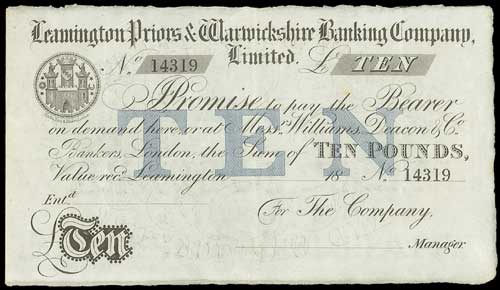 Leamington Priors & Warwickshire Banking Company,
Limited.
No. 14319 £ TEN
I Promise to pay the Bearer
on demand here, or at Messrs. Williams, Deacon & Co.
Bankers, London, the Sum of TEN POUNDS,
Value recd. Leamington 18 No. 14319
TEN
Entd.
For The Company,
£Ten
Manager